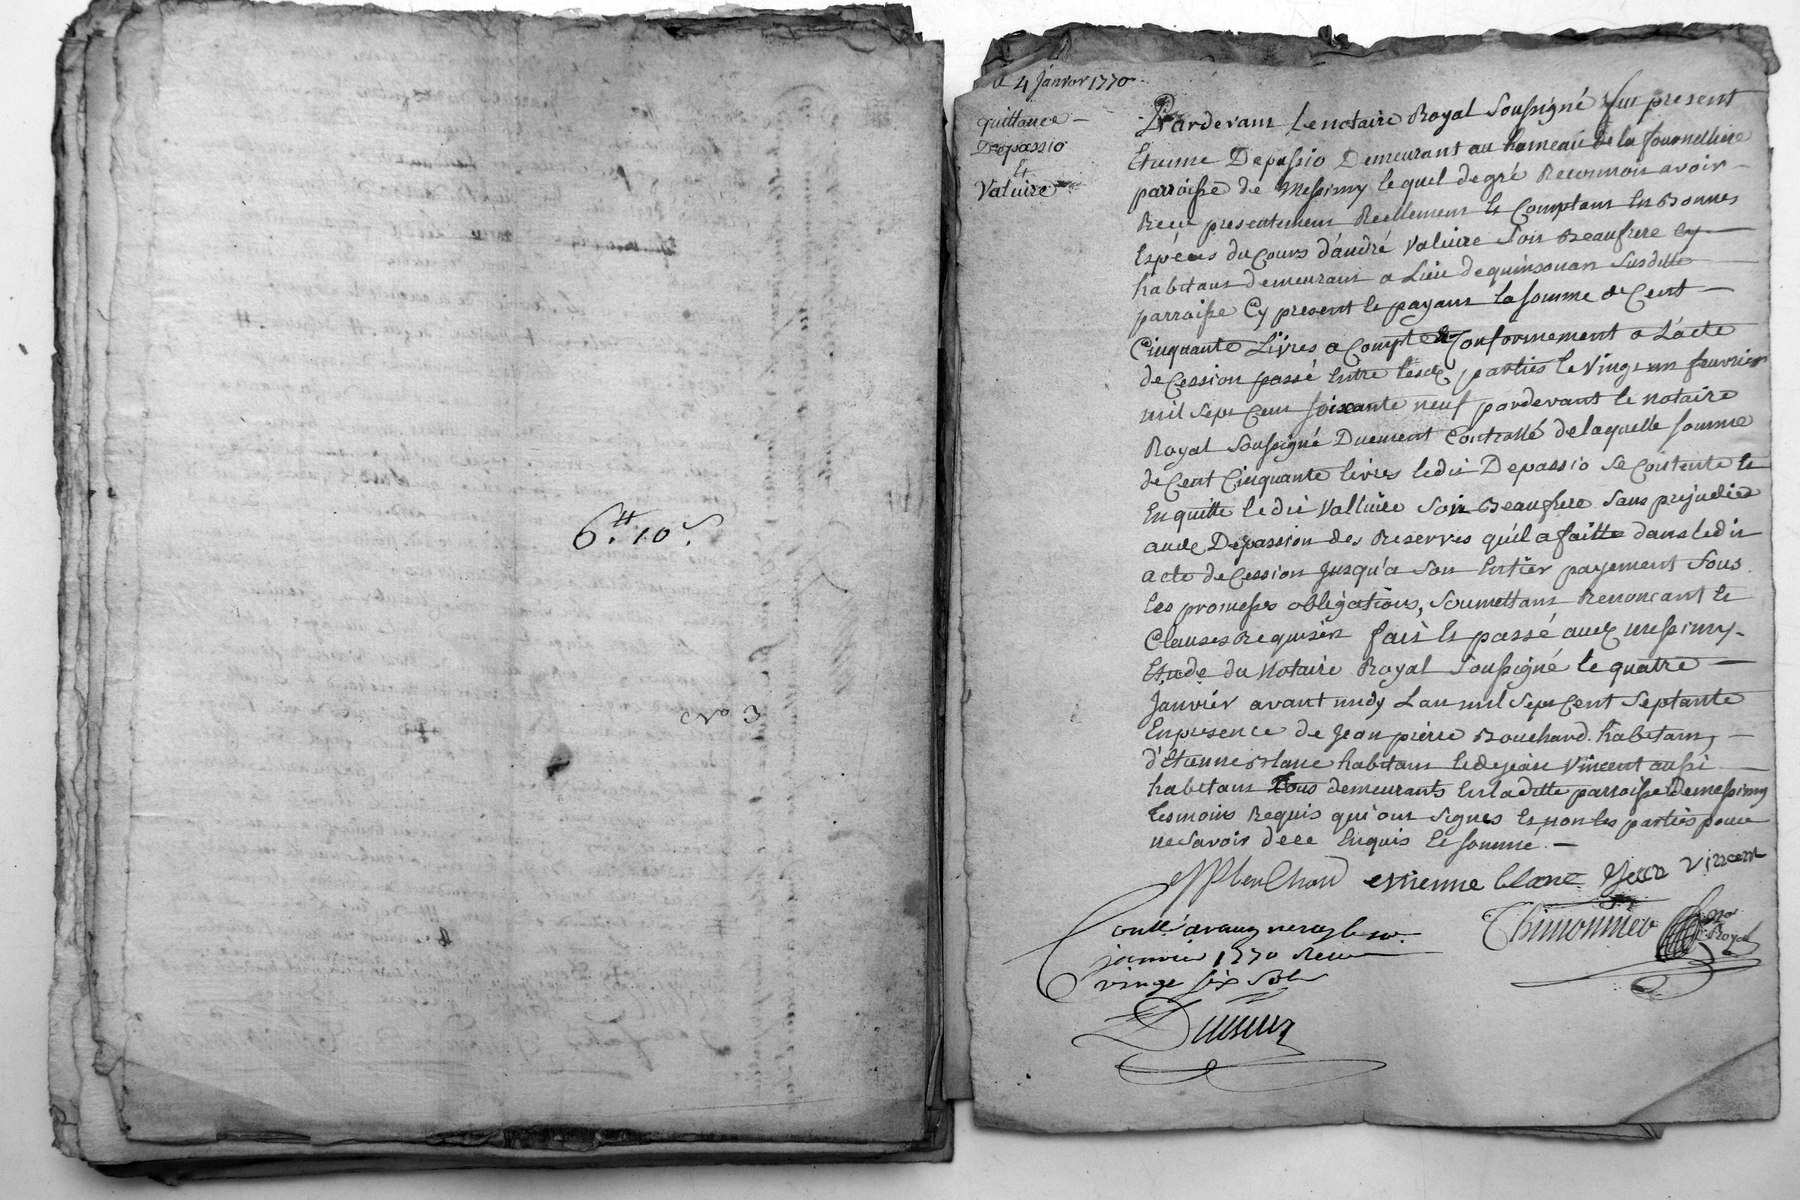 6.₶ 10.s
No 3
Le 4 janvier 1770
quittance
Depassio
Et
Valuire
Pardevant le notaire Royal Soussigné fut present
Etienne Depassio Demeurant au hameau de la fournelliere
parroisse de Messimy lequel de gré Reconnois avoir
Receu presentement Reellement et Comptant En Bonnes
Espéces du Cours d'andré Valuire Son Beaufrere Cy
habitans demeurant a Lieu de quinsonas Susditte
parroisse Cy present et payant la somme de Cent
Cinquante Livres a Compte & Conformement a L'acte
de Cession passé Entre lesd. parties le Vingt un feuvrier
mil Sept Cent soixante neuf pardevant le notaire
Royal Soussigné Duement Controllé de laquelle somme
de Cent Cinquante livres ledit Depassio Se Contente et
En quitte ledit Valluire Son Beaufrere Sans prejudice
aud. Depassion des Reserves qu'il a faitte dans ledit
acte de Cession jusqu'a Son Entier payement Sous
les promesses obligations, Soumettant Renoncant et
Clauses Requises fait et passé aud. Messimy
Etude du Notaire Royal Soussigné le quatre
Janvier avant midy Lan mil Sept Cent Septante
En presence de Jean pierre Bouchard habitant,
d'Etienne Blanc habitans et de jean Vincent aussi
habitans Tous demeurants En la ditte parroisse de messimy
temoins Requis qui ont Signes Et non les parties pour
ne Savoir de ce Enquis Et sommé
JP bouchard estienne blanc Jean Vincent
Chimonnier no.re Royal
Conllé a vaugneray le 10.
janvier 1770 Recu
vingt six Sols